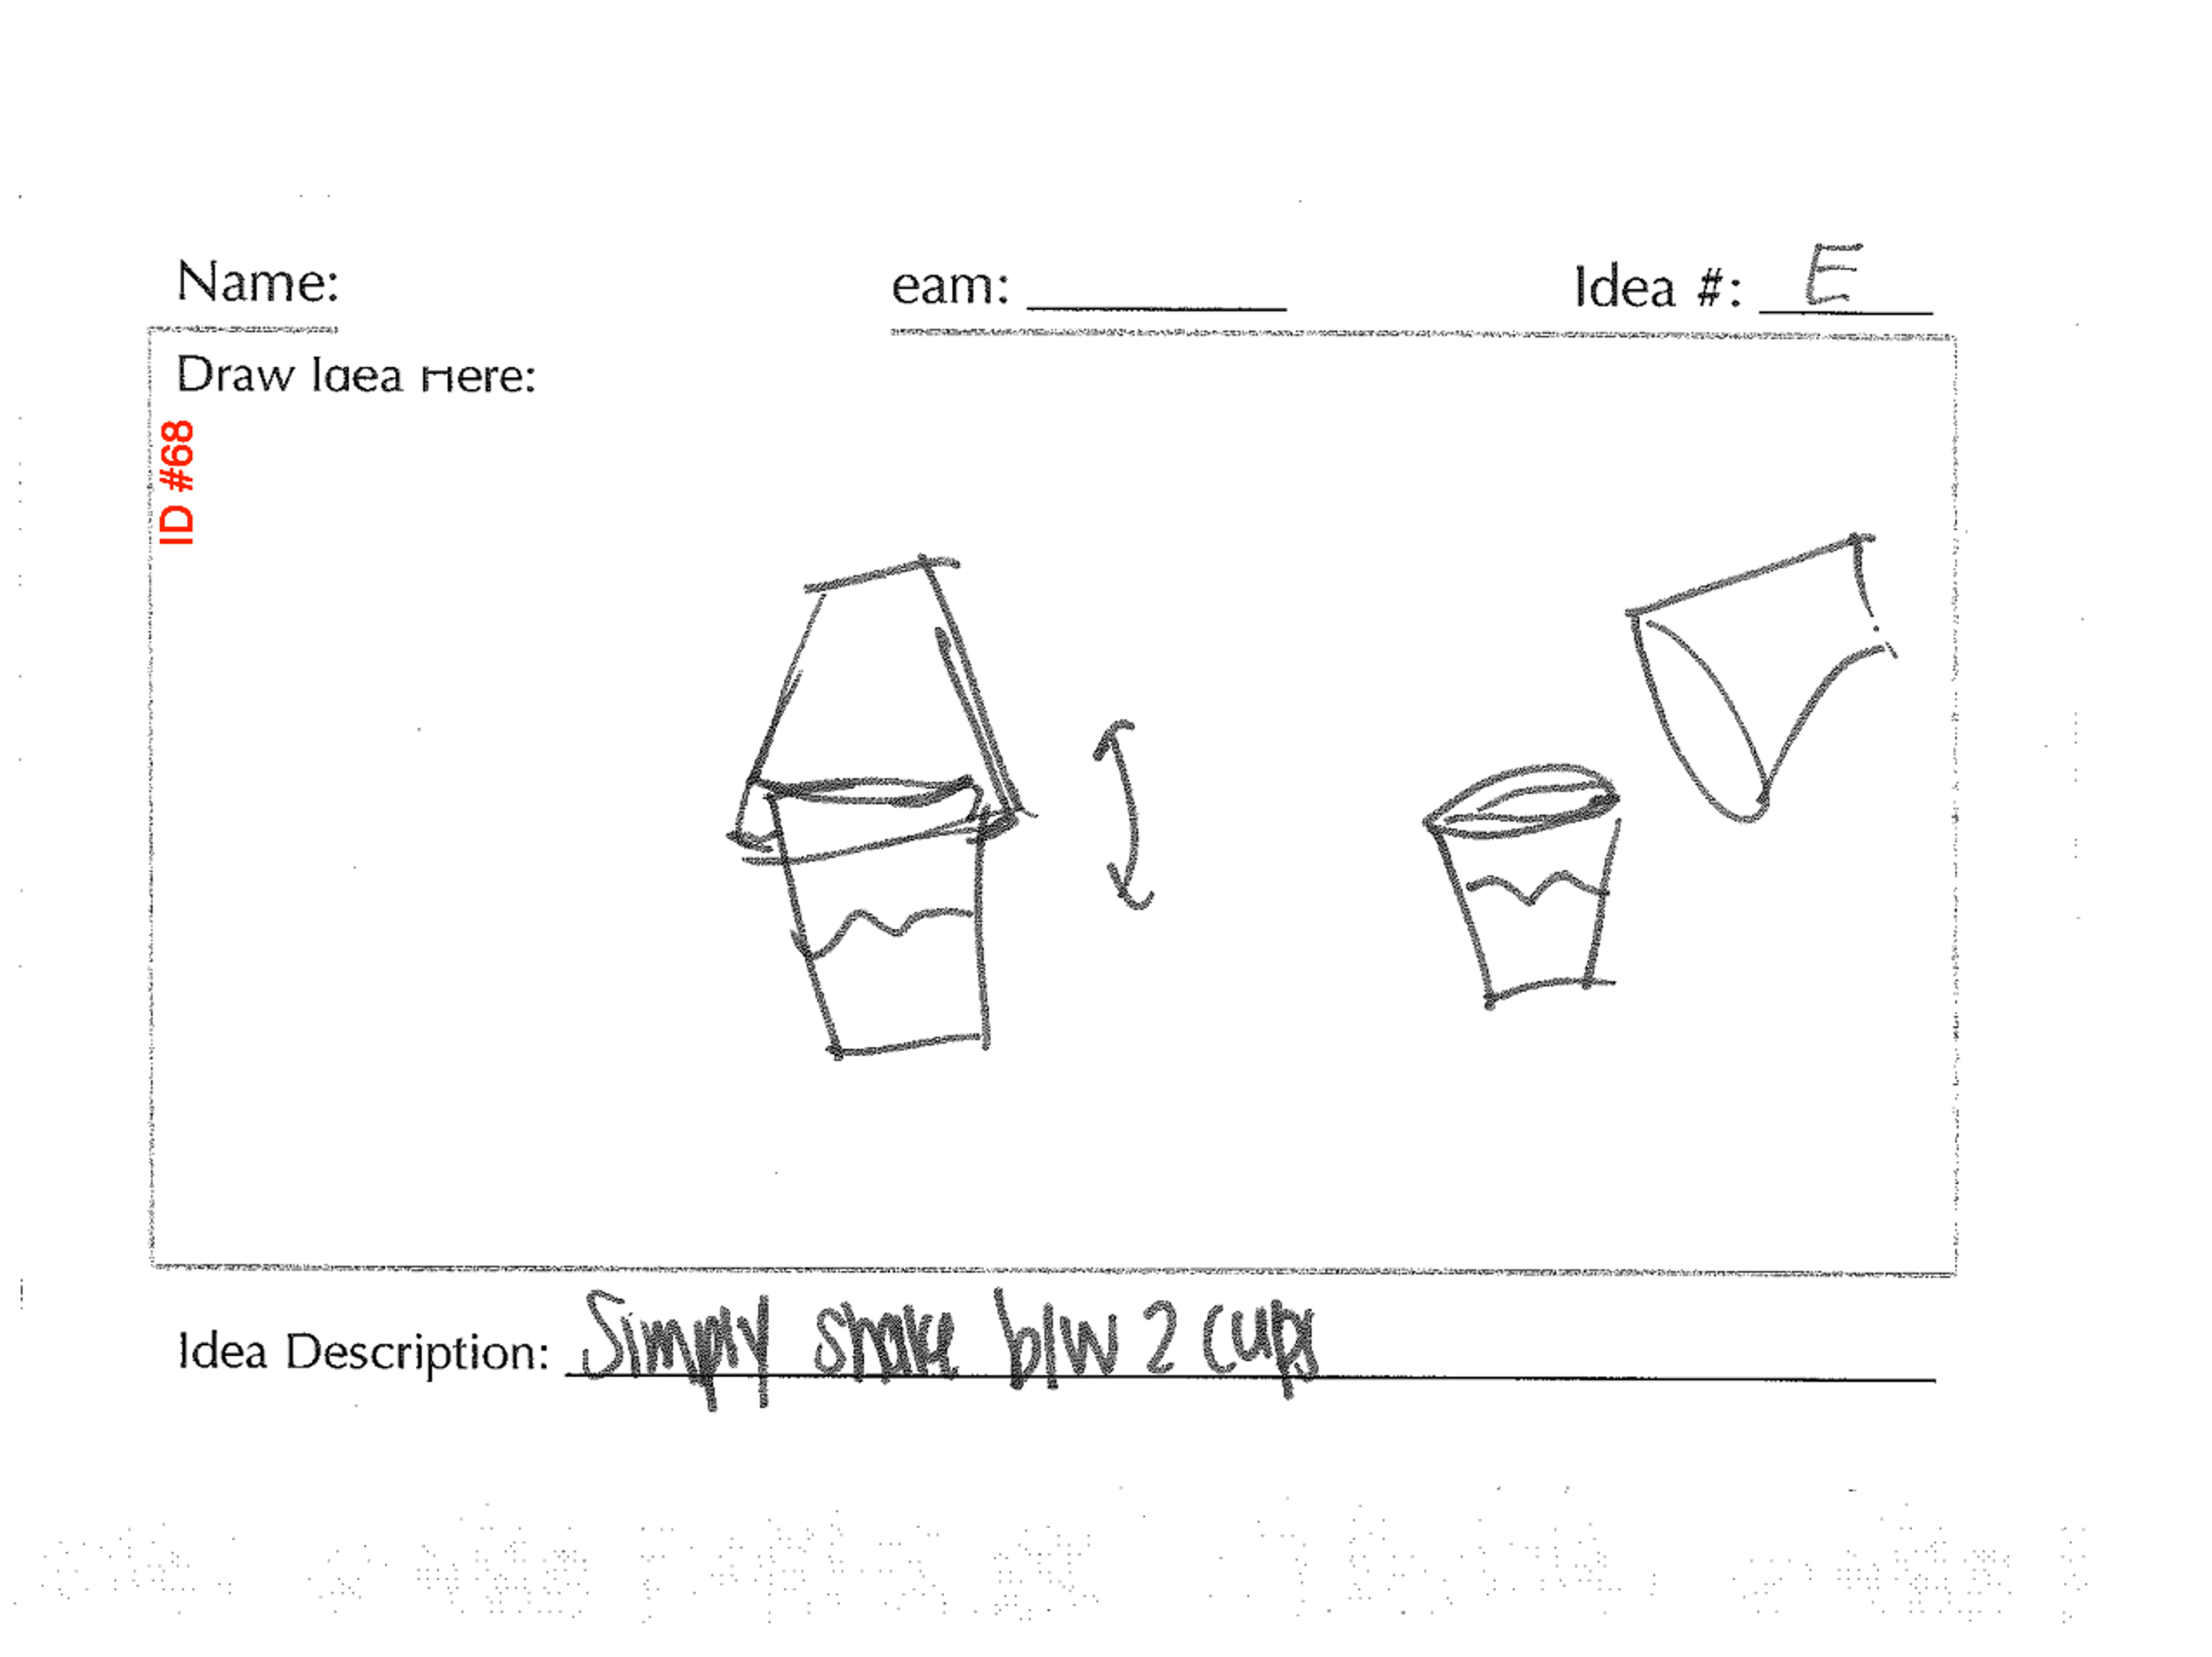 Name: eam: Idea #: E
Draw Idea Here:
ID #68
Idea Description: Simply shake b/w 2 cups